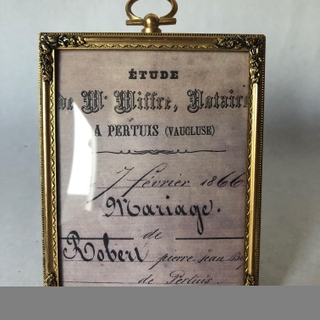 ÉTUDE
de Mr Miffre, Notaire
A PERTUIS (VAUCLUSE)
7 février 1866
Mariage.
de
Robert pierre jean
de Pertuis